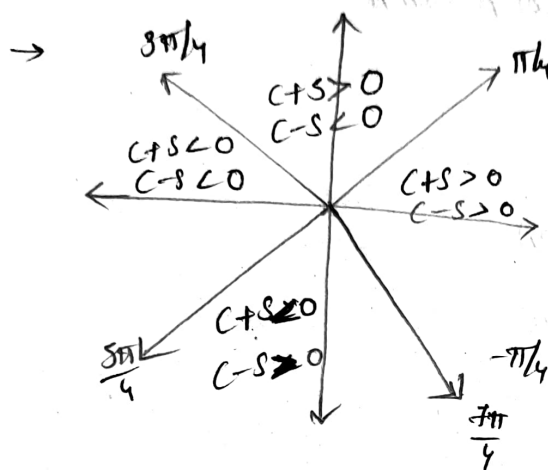 →
3π/4
π/4
C+S>0
C-S<0
C+S<0
C-S<0
C+S>0
C-S>0
C+S<0
C-S>0
5π/4
-π/4
7π/4